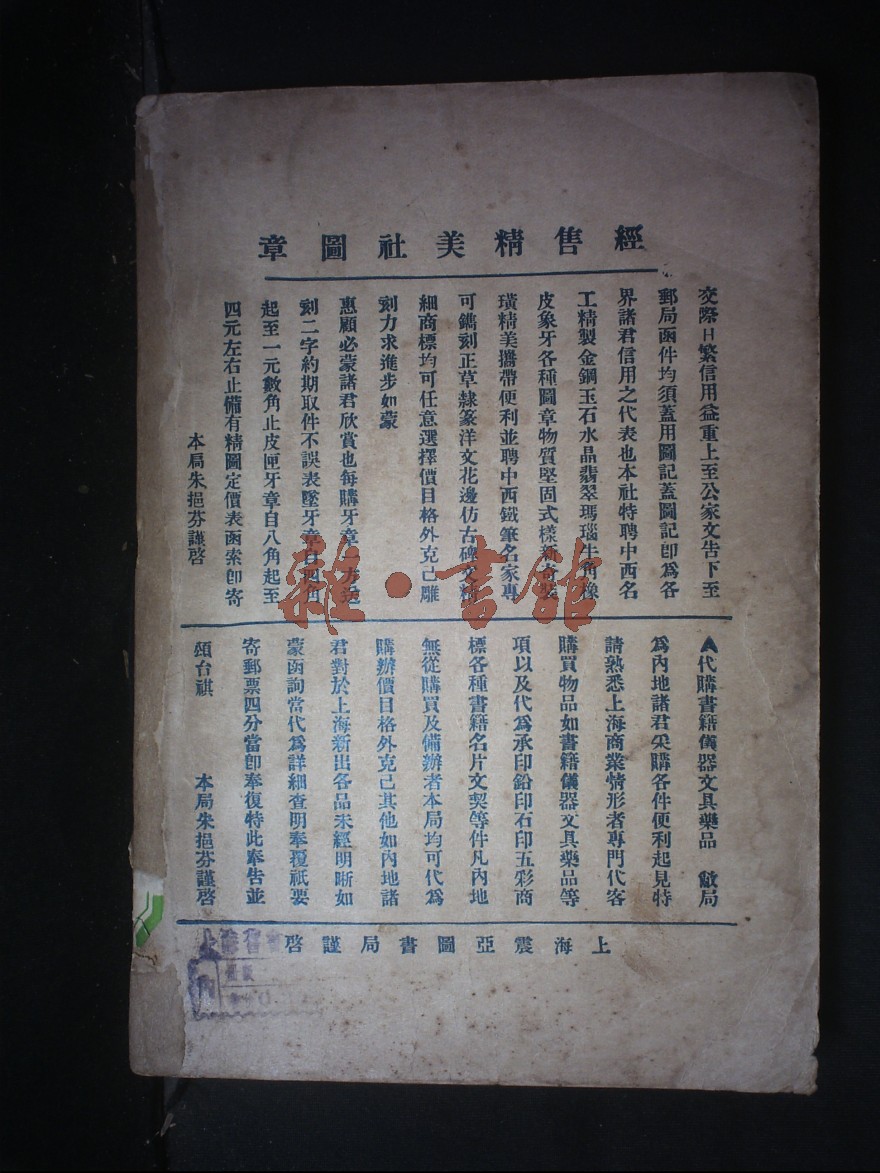 經售精美社圖章
交際日繁信用益重上至公家文告下至
郵局函件均須蓋用圖記蓋圖記卽爲各
界諸君信用之代表也本社特聘中西名
工精製金鋼玉石水晶翡翠瑪瑙牛角橡
皮象牙各種圖章物質堅固式樣新奇裝
璜精美攜帶便利並聘中西鐵筆名家專
可鐫刻正草隸篆洋文花邊仿古碑文精
細商標均可任意選擇價目格外克己雕
刻力求進步如蒙
惠顧必蒙諸君欣賞也每購牙章一方送
刻二字約期取件不誤表墜牙章自四角
起至一元數角止皮匣牙章自八角起至
四元左右止備有精圖定價表函索卽寄
本局朱挹芬謹啓
▲代購書籍儀器文具藥品 敝局
爲內地諸君采購各件便利起見特
請熟悉上海商業情形者專門代客
購買物品如書籍儀器文具藥品等
項以及代爲承印鉛印石印五彩商
標各種書籍名片文契等件凡內地
無從購買及備辦者本局均可代爲
購辦價目格外克己其他如內地諸
君對於上海新出各品未經明晰如
蒙函詢當代爲詳細查明奉覆祇要
寄郵票四分當卽奉復特此奉告並
頌台祺 本局朱挹芬謹啓
上海震亞圖書局謹啓
雜·書館